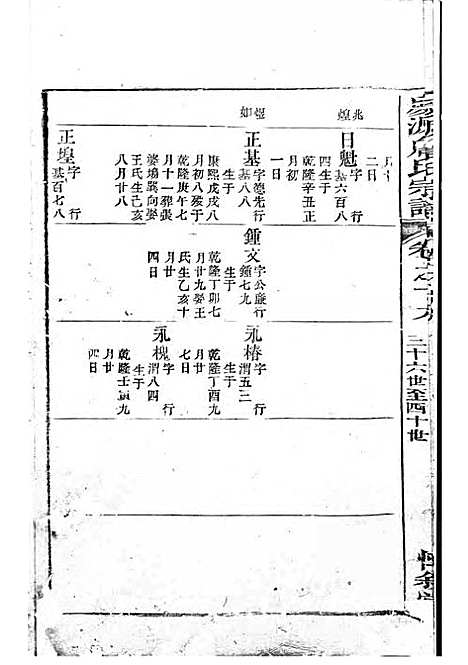 三十六世至四十世
兆煌
煜如
月廿
二日
日魁 字 行
基六百八
四 生于
乾隆辛丑正
月初
一日
正基 字德先行
基八八
生于
康熙戊戌八
月初八歿于
乾隆庚午七
月十一葬裝
婆塢巽向娶
王氏生己亥
八月廿八
正堭 字 行
基百七八
鍾文 字公廉行
鍾七九
生于
乾隆丁卯七
月廿九娶王
氏生乙亥十
四日
永椿 字 行
渭五三
生于
乾隆丁酉九
月廿
七日
永槐 字 行
渭八四
生于
乾隆壬寅九
月廿
四日